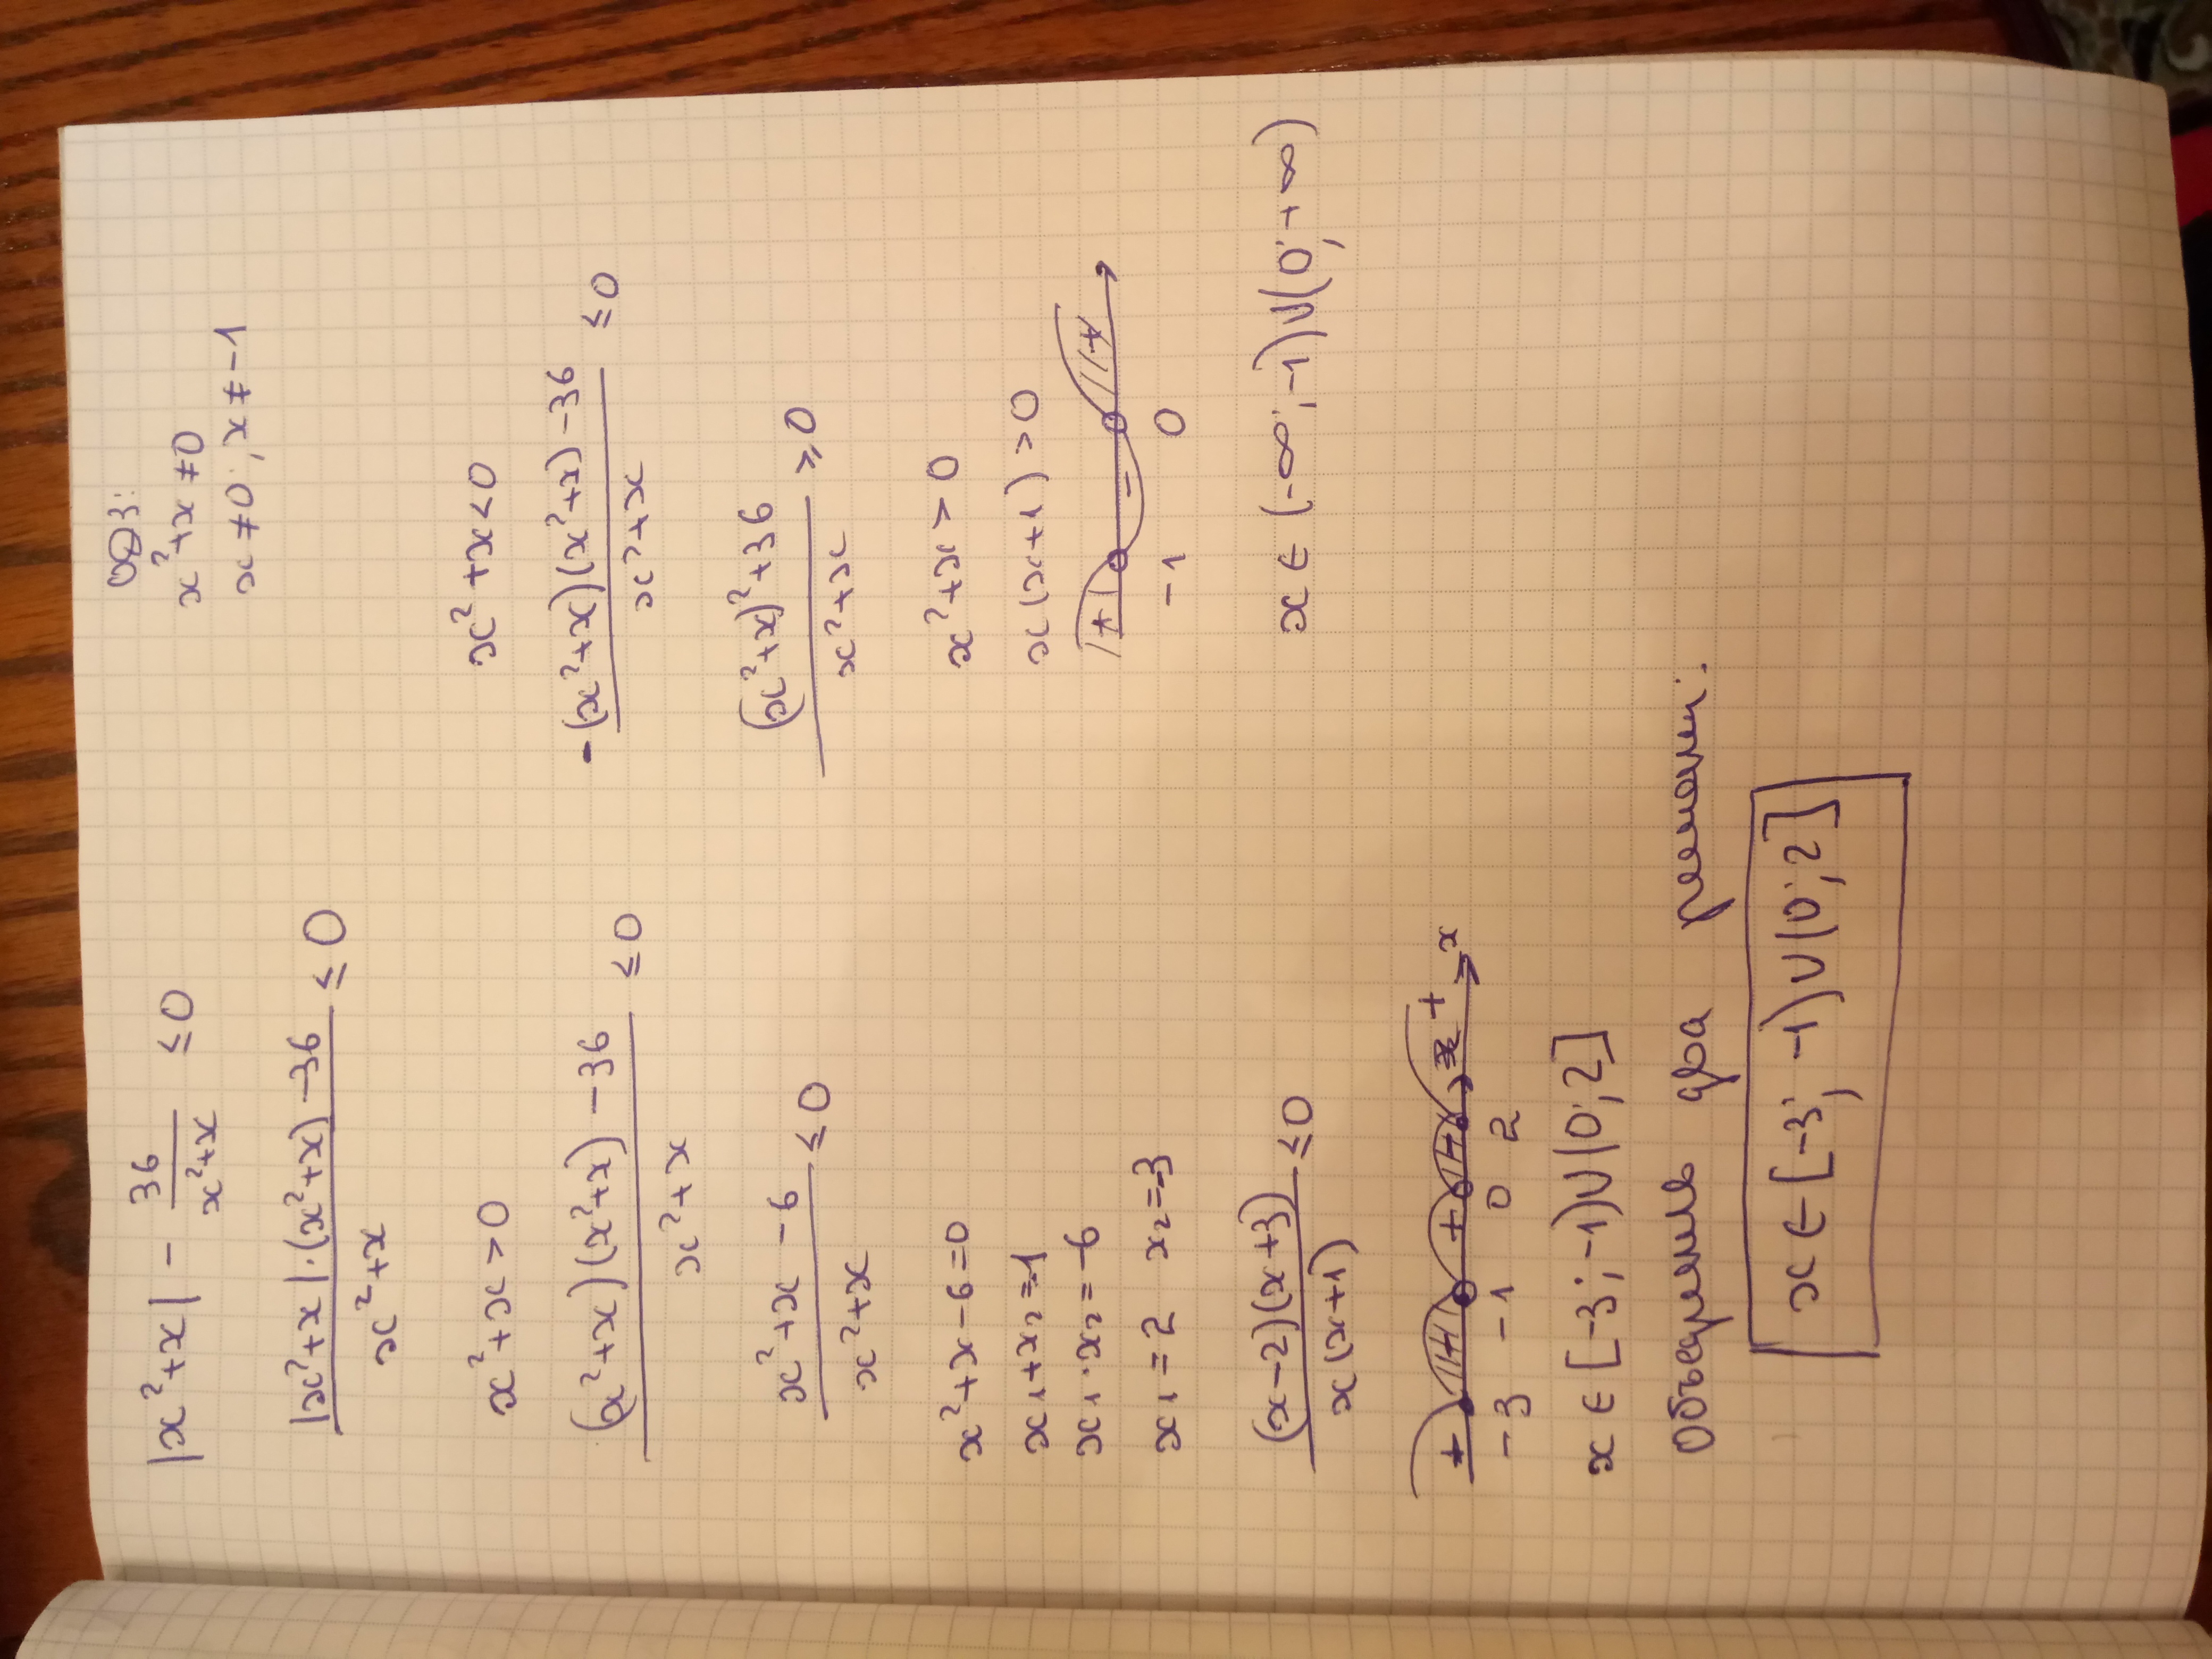 |x²+x| - 36/(x²+x) ≤ 0
ОДЗ:
x²+x ≠ 0
x ≠ 0; x ≠ -1
(|x²+x|·(x²+x) - 36)/(x²+x) ≤ 0
x²+x > 0
((x²+x)(x²+x) - 36)/(x²+x) ≤ 0
(x²+x - 6)/(x²+x) ≤ 0
x²+x-6=0
x₁+x₂=-1
x₁·x₂=-6
x₁=2 x₂=-3
((x-2)(x+3))/(x(x+1)) ≤ 0
+ - + - + x
-3 -1 0 2
x ∈ [-3; -1)∪(0; 2]
x²+x<0
(-(x²+x)(x²+x) - 36)/(x²+x) ≤ 0
((x²+x)²+36)/(x²+x) ≥ 0
x²+x > 0
x(x+1) > 0
+ - +
-1 0
x ∈ (-∞; -1)∪(0; +∞)
два
x ∈ [-3; -1)∪(0; 2]